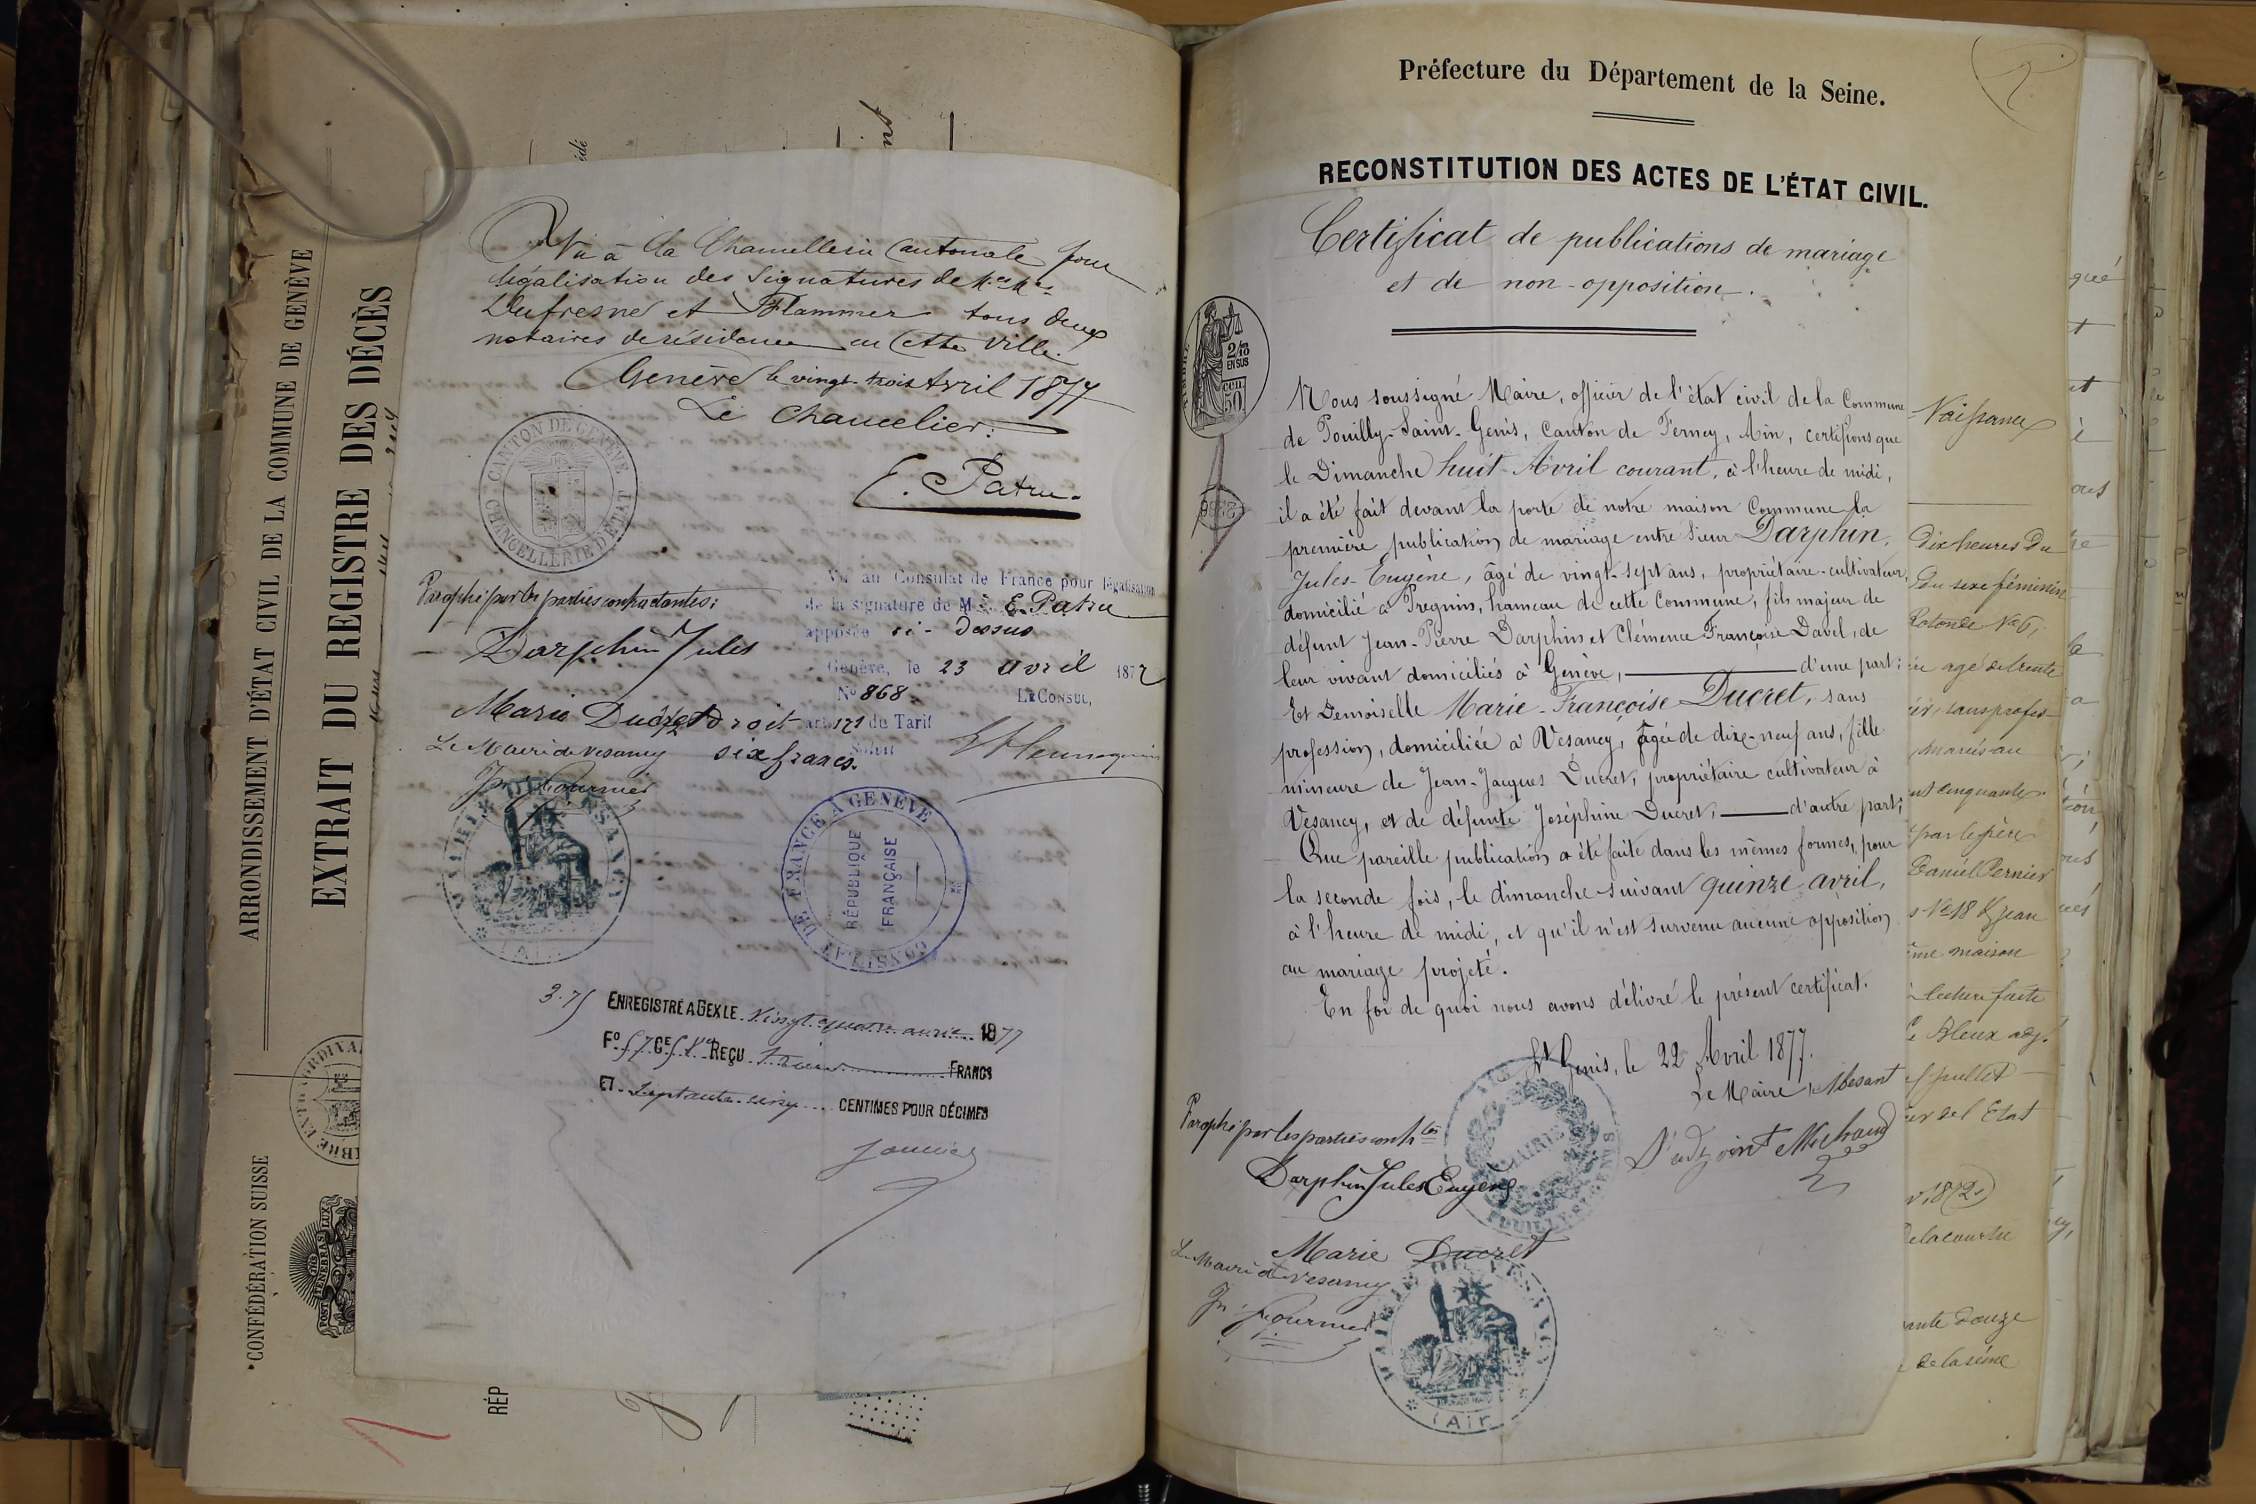 ARRONDISSEMENT D'ÉTAT CIVIL DE LA COMMUNE DE GENÈVE
EXTRAIT DU REGISTRE DES DÉCÈS
CONFÉDÉRATION SUISSE
POST TENEBRAS LUX
RÉP
Vu à la Chancellerie Cantonale pour
légalisation des Signatures de
Dufresne et Flammer tous deux
notaires de résidence en Cette Ville.
Genève le vingt-trois Avril 1877
Le Chancelier:
E. Patru
CANTON DE GENÈVE
CHANCELLERIE D'ÉTAT
Paraphé par les parties contractantes:
Darphin Jules
Marie Ducret
Le Maire de Vesancy
Jn Fournier
Vu au Consulat de France pour légalisation
de la signature de M. E. Patru
apposée ci-dessus
Genève, le 23 avril 1877
No 868 LE CONSUL,
droit art. 121 du Tarif
six francs.
MAIRIE DE VESANCY
(Ain)
CONSULAT DE FRANCE A GENÈVE
RÉPUBLIQUE
FRANÇAISE
3.75 ENREGISTRÉ A GEX LE vingt-quatre avril 1877
Fo 57 Ce 5 REÇU trois FRANCS
ET Septante-cinq CENTIMES POUR DÉCIMES
Préfecture du Département de la Seine.
RECONSTITUTION DES ACTES DE L'ÉTAT CIVIL.
Certificat de publications de mariage
et de non-opposition.
2/10
EN SUS
50 cen
Nous soussigné Maire, officier de l'état civil de la Commune
de Pouilly-Saint-Genis, Canton de Ferney, Ain, certifions que
le Dimanche huit Avril courant, à l'heure de midi,
il a été fait devant la porte de notre maison Commune la
première publication de mariage entre Sieur Darphin,
Jules-Eugène, âgé de vingt-sept ans, propriétaire-cultivateur,
domicilié à Pregnin, hameau de cette Commune, fils majeur de
défunt Jean-Pierre Darphin et Clémence Françoise David, de
leur vivant domiciliés à Genève, d'une part;
Et Demoiselle Marie-Françoise Ducret, sans
profession, domiciliée à Vesancy, âgée de dix-neuf ans, fille
mineure de Jean-Jacques Ducret, propriétaire cultivateur à
Vesancy, et de défunte Joséphine Ducret, d'autre part;
Que pareille publication a été faite dans les mêmes formes, pour
la seconde fois, le dimanche suivant quinze avril,
à l'heure de midi, et qu'il n'est survenu aucune opposition
au mariage projeté.
En foi de quoi nous avons délivré le présent certificat.
St Genis, le 22 Avril 1877.
Le Maire Absent
L'adjoint Michaud
Paraphé par les parties contrtes
Darphin Jules Eugène
Marie Ducret
Le Maire de Vesancy
Jn Fournier
MAIRIE DE VESANCY
(Ain)
Naissance
Dix heures Du
Du sexe féminin
Rotonde No 6,
âgé de trente
sans profes-
mariés au
cinquante
par le père
Daniel Pernier
No 18 & Jean
même maison
lecture faite
Bleux adj.
de l'Etat
de la seine